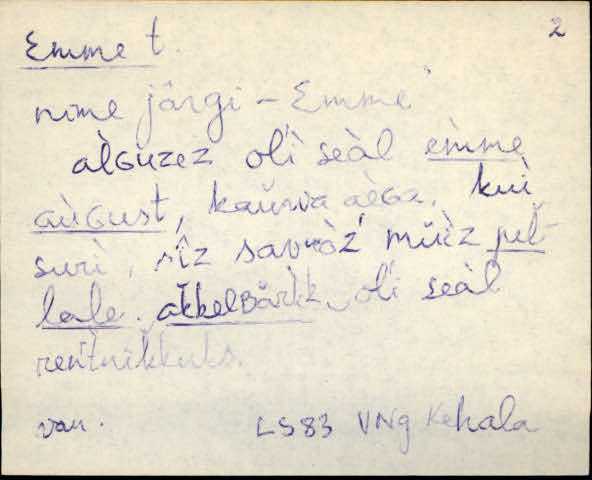 2
Emme t.
nime järgi - Emme
àlGuzez oĺi seàl emme
aùGust, kaŭwa àeGa. kui
suri, sîz müìz pel-
lale. akkelBärkk oĺi seàl
reńtnikkuks.
van. LS83 VNg Kehala